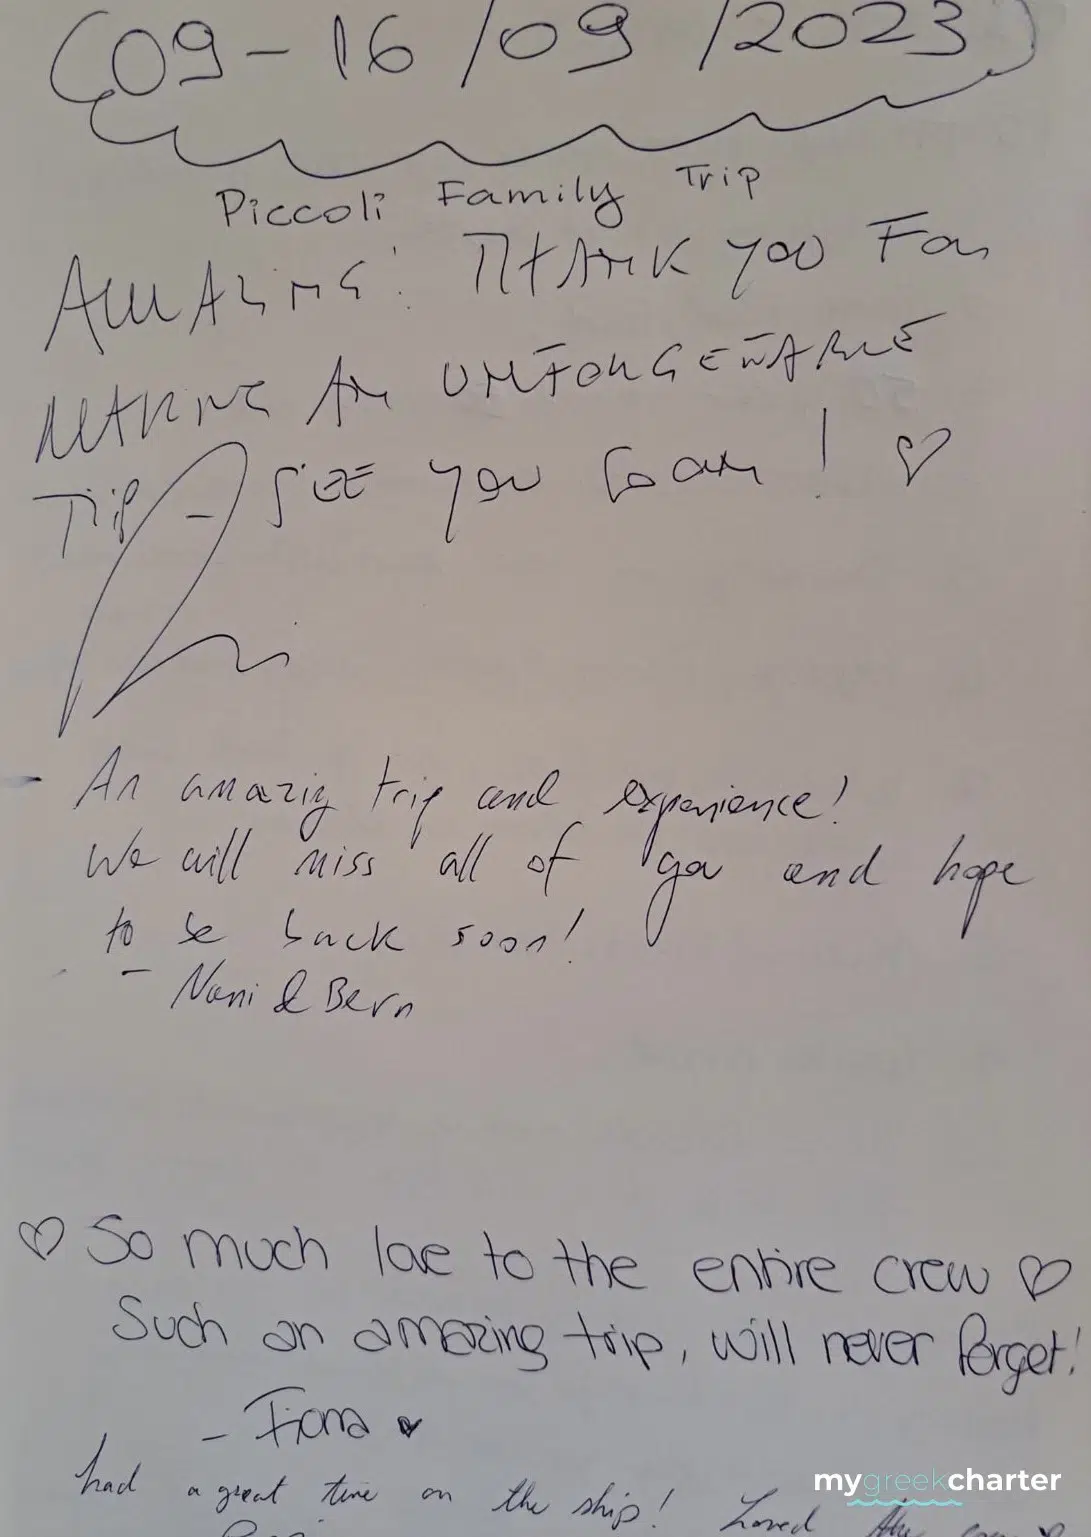 (09-16/09/2023)
Piccoli Family Trip
AMAZING! THANK YOU FOR
MAKING AN UNFORGETTABLE
TRIP - SEE YOU SOON! ♡
- An amazig trip and experience!
We will miss all of you and hope
to be back soon!
- Nani & Bern
♡ So much love to the entire crew ♡
Such an amazing trip, will never forget!
- Fiona ♥
had a great time on the ship! Loved the
mygreekcharter